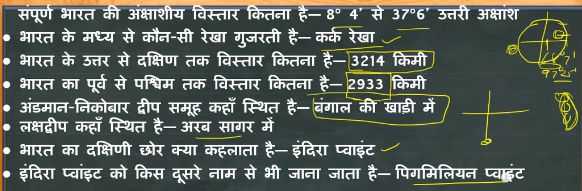 संपूर्ण भारत की अंक्षाशीय विस्तार कितना है— 8° 4' से 37°6' उत्तरी अक्षांश
• भारत के मध्य से कौन-सी रेखा गुजरती है— कर्क रेखा
• भारत के उत्तर से दक्षिण तक विस्तार कितना है— 3214 किमी
• भारत का पूर्व से पश्चिम तक विस्तार कितना है— 2933 किमी
• अंडमान-निकोबार द्वीप समूह कहाँ स्थित है— बंगाल की खाड़ी में
• लक्षद्वीप कहाँ स्थित है— अरब सागर में
• भारत का दक्षिणी छोर क्या कहलाता है— इंदिरा प्वाइंट
• इंदिरा प्वांइट को किस दूसरे नाम से भी जाना जाता है— पिगमिलियन प्वांइट